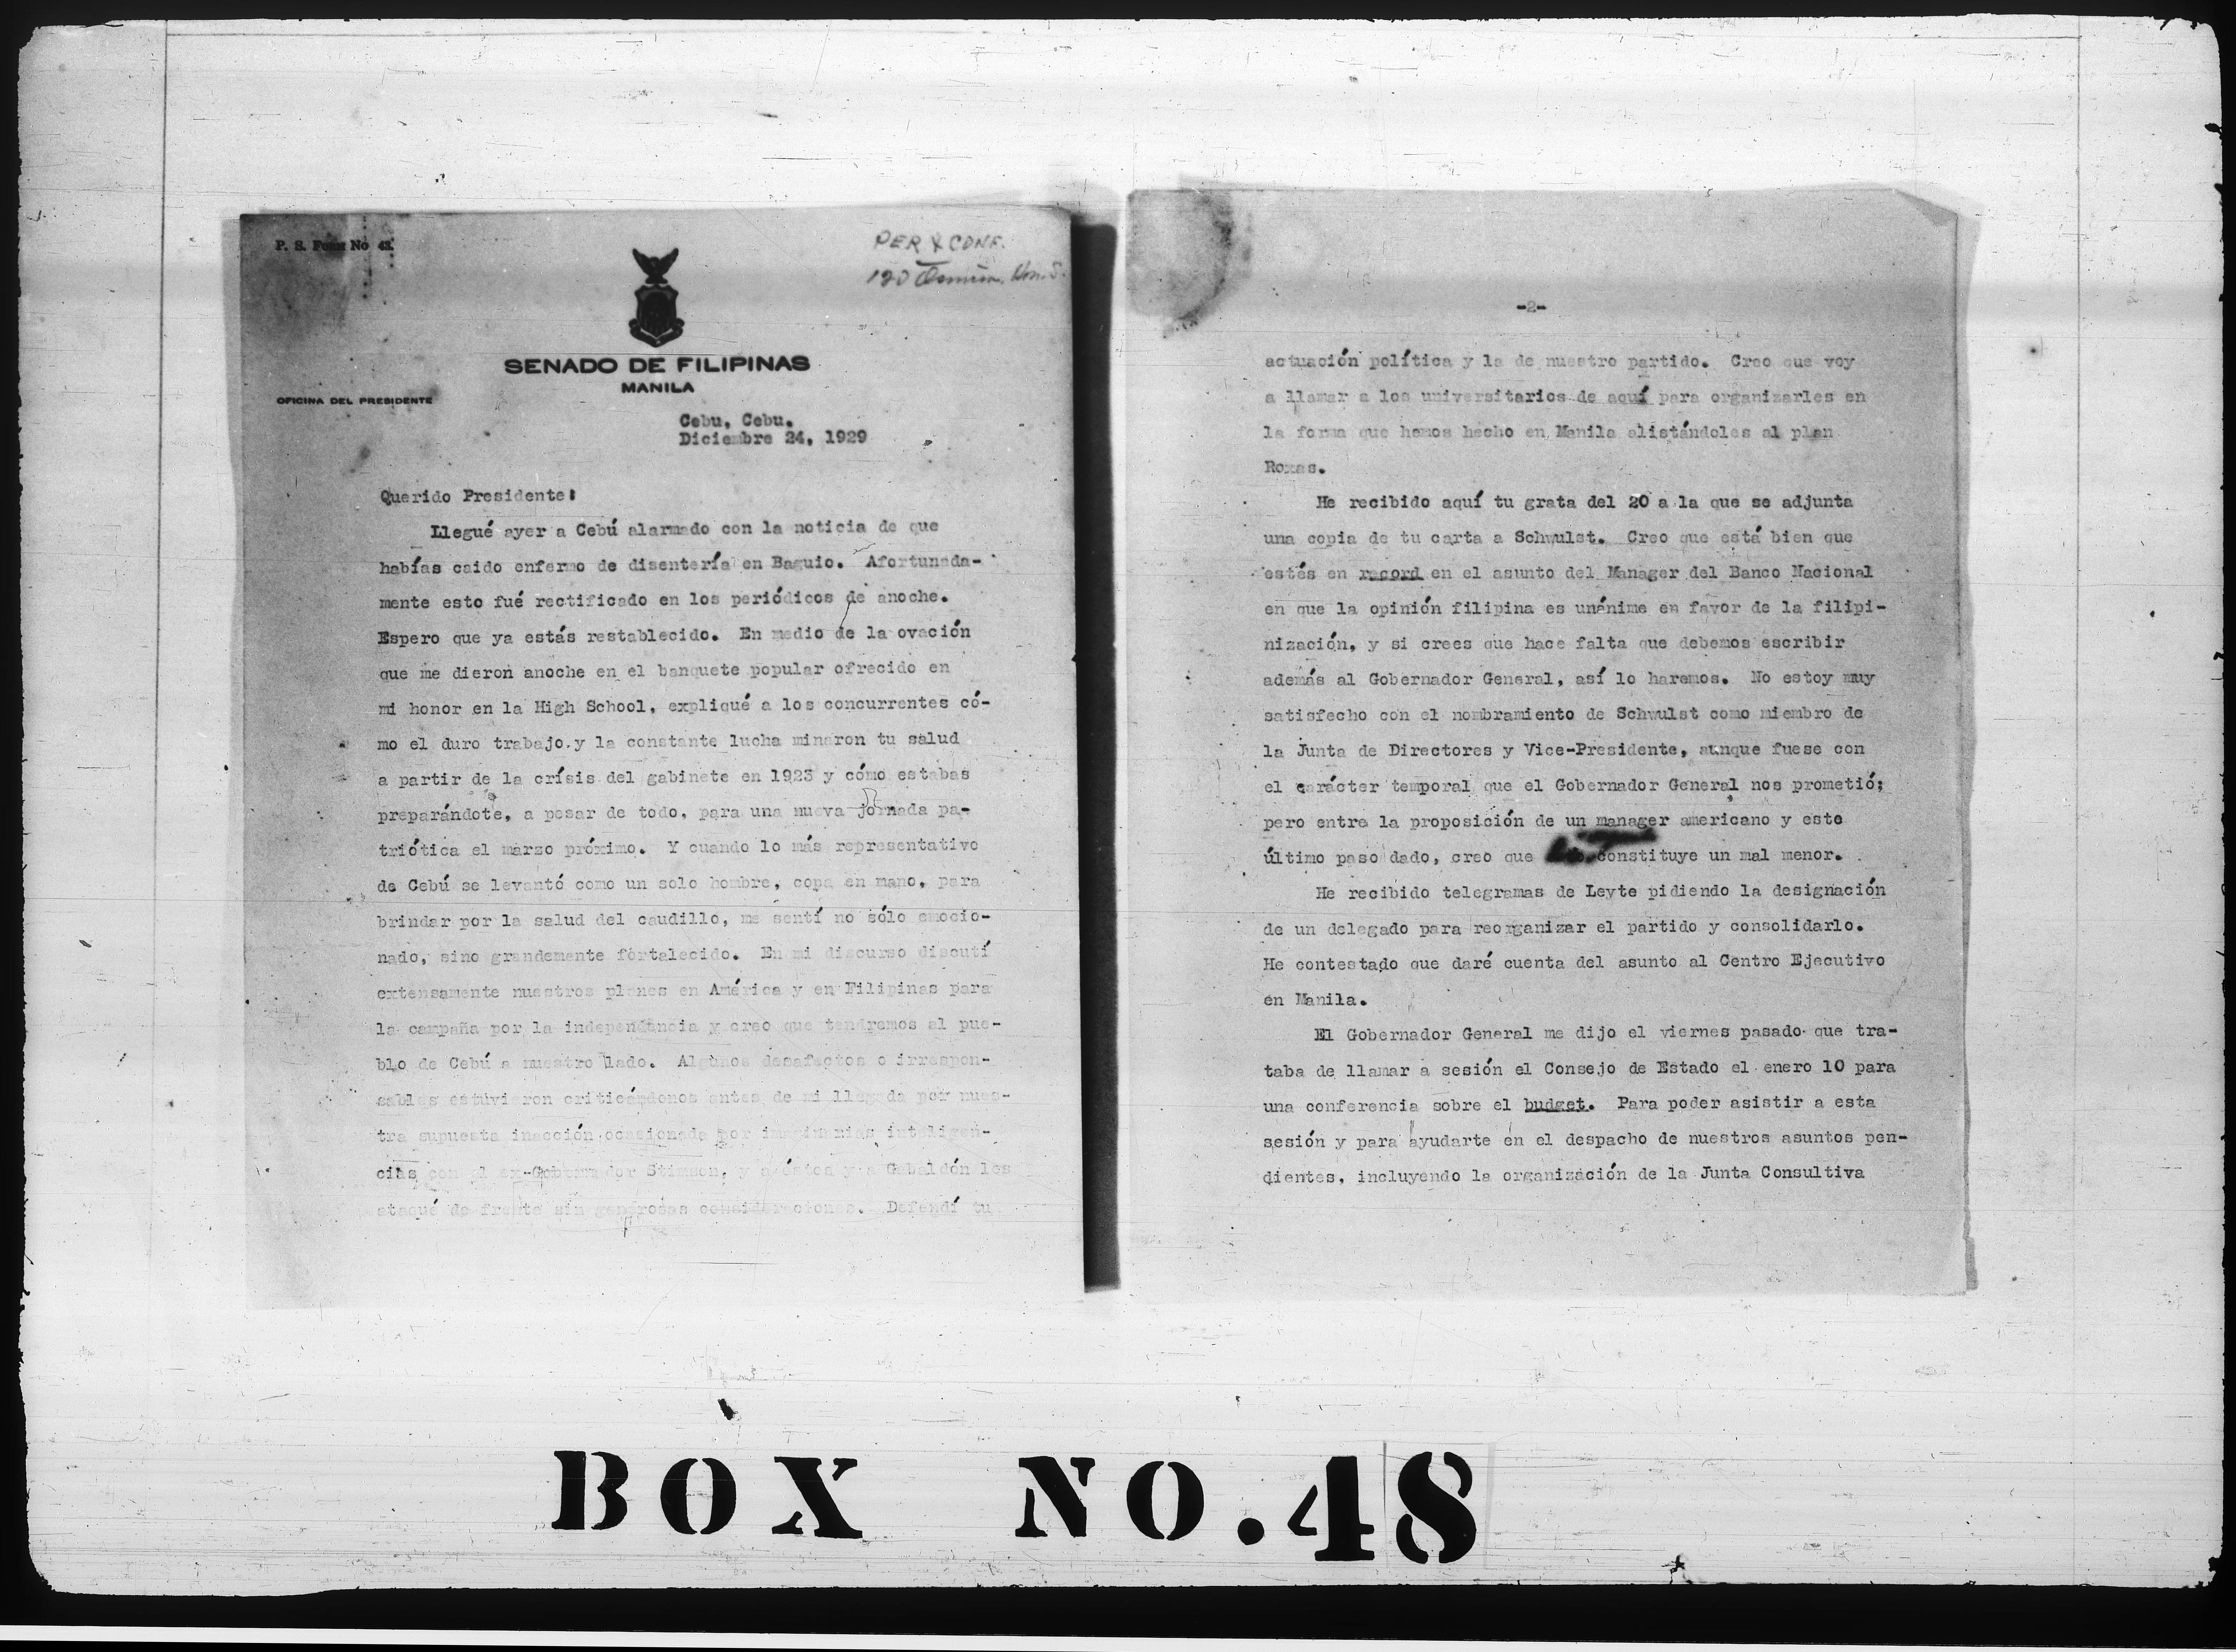 P. S. Form No 42.
PER & CONF.
120 Osmeña,
SENADO DE FILIPINAS
MANILA
OFICINA DEL PRESIDENTE
Cebu, Cebu.
Diciembre 24, 1929
Querido Presidente:
Llegué ayer a Cebú alarmado con la noticia de que
habías caido enfermo de disentería en Baguio. Afortunada-
mente esto fué rectificado en los periódicos de anoche.
Espero que ya estás restablecido. En medio de la ovación
que me dieron anoche en el banquete popular ofrecido en
mi honor en la High School, expliqué a los concurrentes có-
mo el duro trabajo y la constante lucha minaron tu salud
a partir de la crísis del gabinete en 1923 y cómo estabas
preparándote, a pesar de todo, para una nueva jornada pa-
triótica el marzo próximo. Y cuando lo más representativo
de Cebú se levantó como un solo hombre, copa en mano, para
brindar por la salud del caudillo, me sentí no sólo emocio-
nado, sino grandemente fortalecido. En mi discurso discutí
extensamente nuestros planes en América y en Filipinas para
la campaña por la independencia y creo que tendremos al pue-
blo de Cebú a nuestro lado. Algunos desafectos o irrespon-
sables estuvieron criticándonos antes de mi llegada por nues-
tra supuesta inacción ocasionada por imaginarias inteligen-
cias con el ex-Gobernador Stimson, y a éstos y a Gabaldón les
ataqué de frente sin generosas consideraciones. Defendí tu
-2-
actuación política y la de nuestro partido. Creo que voy
a llamar a los universitarios de aquí para organizarles en
la forma que hemos hecho en Manila alistándoles al plan
Roxas.
He recibido aquí tu grata del 20 a la que se adjunta
una copia de tu carta a Schwulst. Creo que está bien que
estés en record en el asunto del Manager del Banco Nacional
en que la opinión filipina es unánime en favor de la filipi-
nización, y si crees que hace falta que debemos escribir
además al Gobernador General, así lo haremos. No estoy muy
satisfecho con el nombramiento de Schwulst como miembro de
la Junta de Directores y Vice-Presidente, aunque fuese con
el carácter temporal que el Gobernador General nos prometió;
pero entre la proposición de un manager americano y este
último paso dado, creo que constituye un mal menor.
He recibido telegramas de Leyte pidiendo la designación
de un delegado para reorganizar el partido y consolidarlo.
He contestado que daré cuenta del asunto al Centro Ejecutivo
en Manila.
El Gobernador General me dijo el viernes pasado que tra-
taba de llamar a sesión el Consejo de Estado el enero 10 para
una conferencia sobre el budget. Para poder asistir a esta
sesión y para ayudarte en el despacho de nuestros asuntos pen-
dientes, incluyendo la organización de la Junta Consultiva
BOX NO. 48